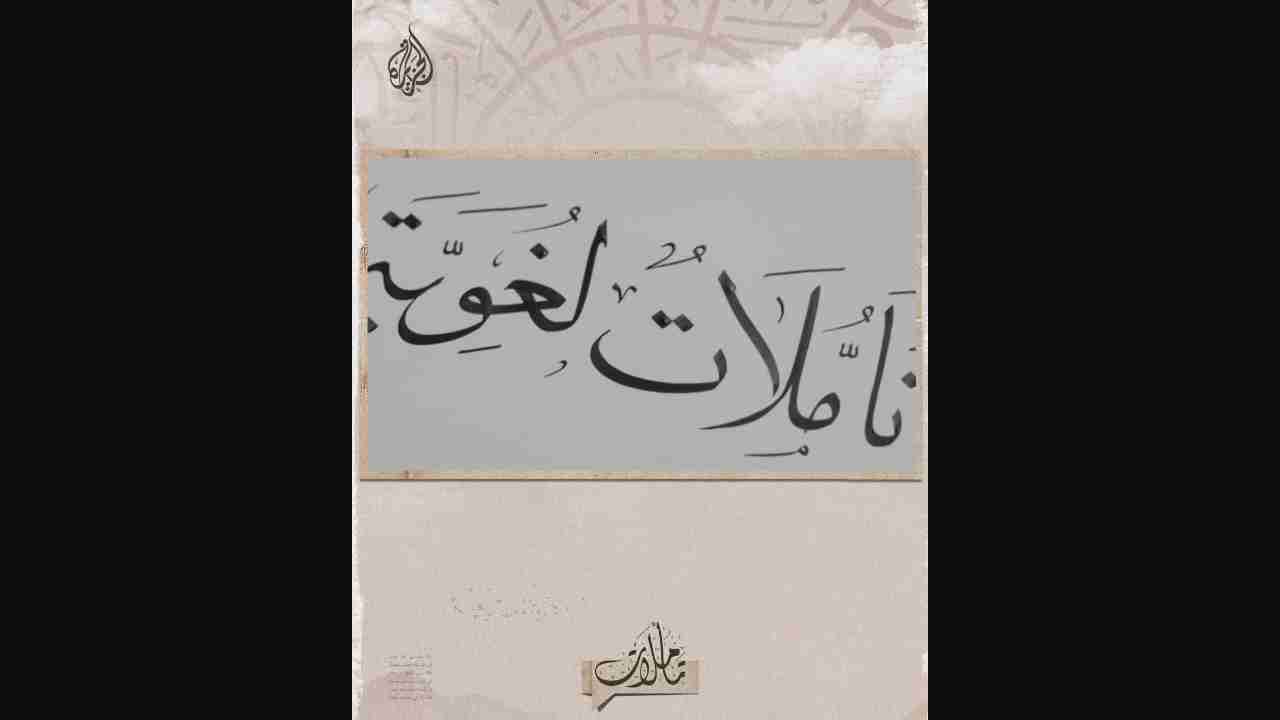 الجزيرة
تَأَمُّلَاتٌ لُغَوِيَّة
تأملات